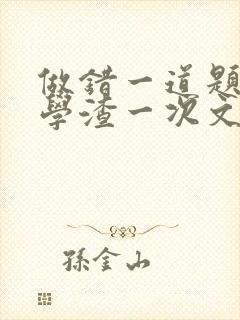 做錯一道題
學渣一次文
孫金山